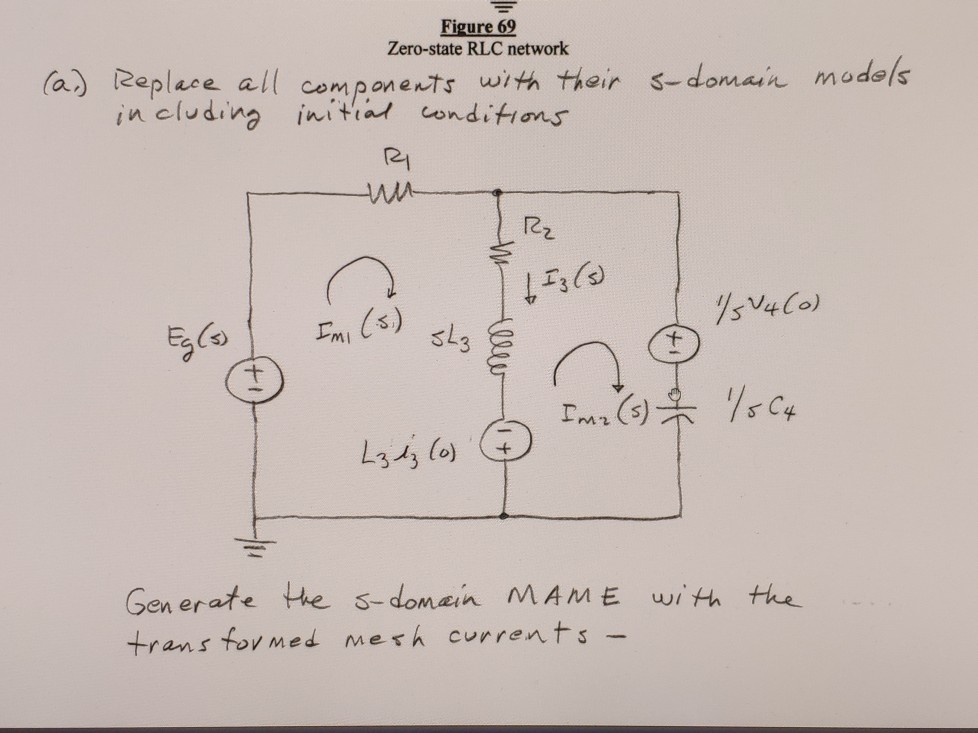 Figure 69
Zero-state RLC network
(a.) Replace all components with their s-domain models
including initial conditions
R1
R2
↓ I3(s)
1/s V4(0)
Eg(s)
Im1(s)
sL3
+
-
+
-
Im2(s)
1/sC4
L3 i3(0)
-
+
Generate the s-domain MAME with the
transformed mesh currents -